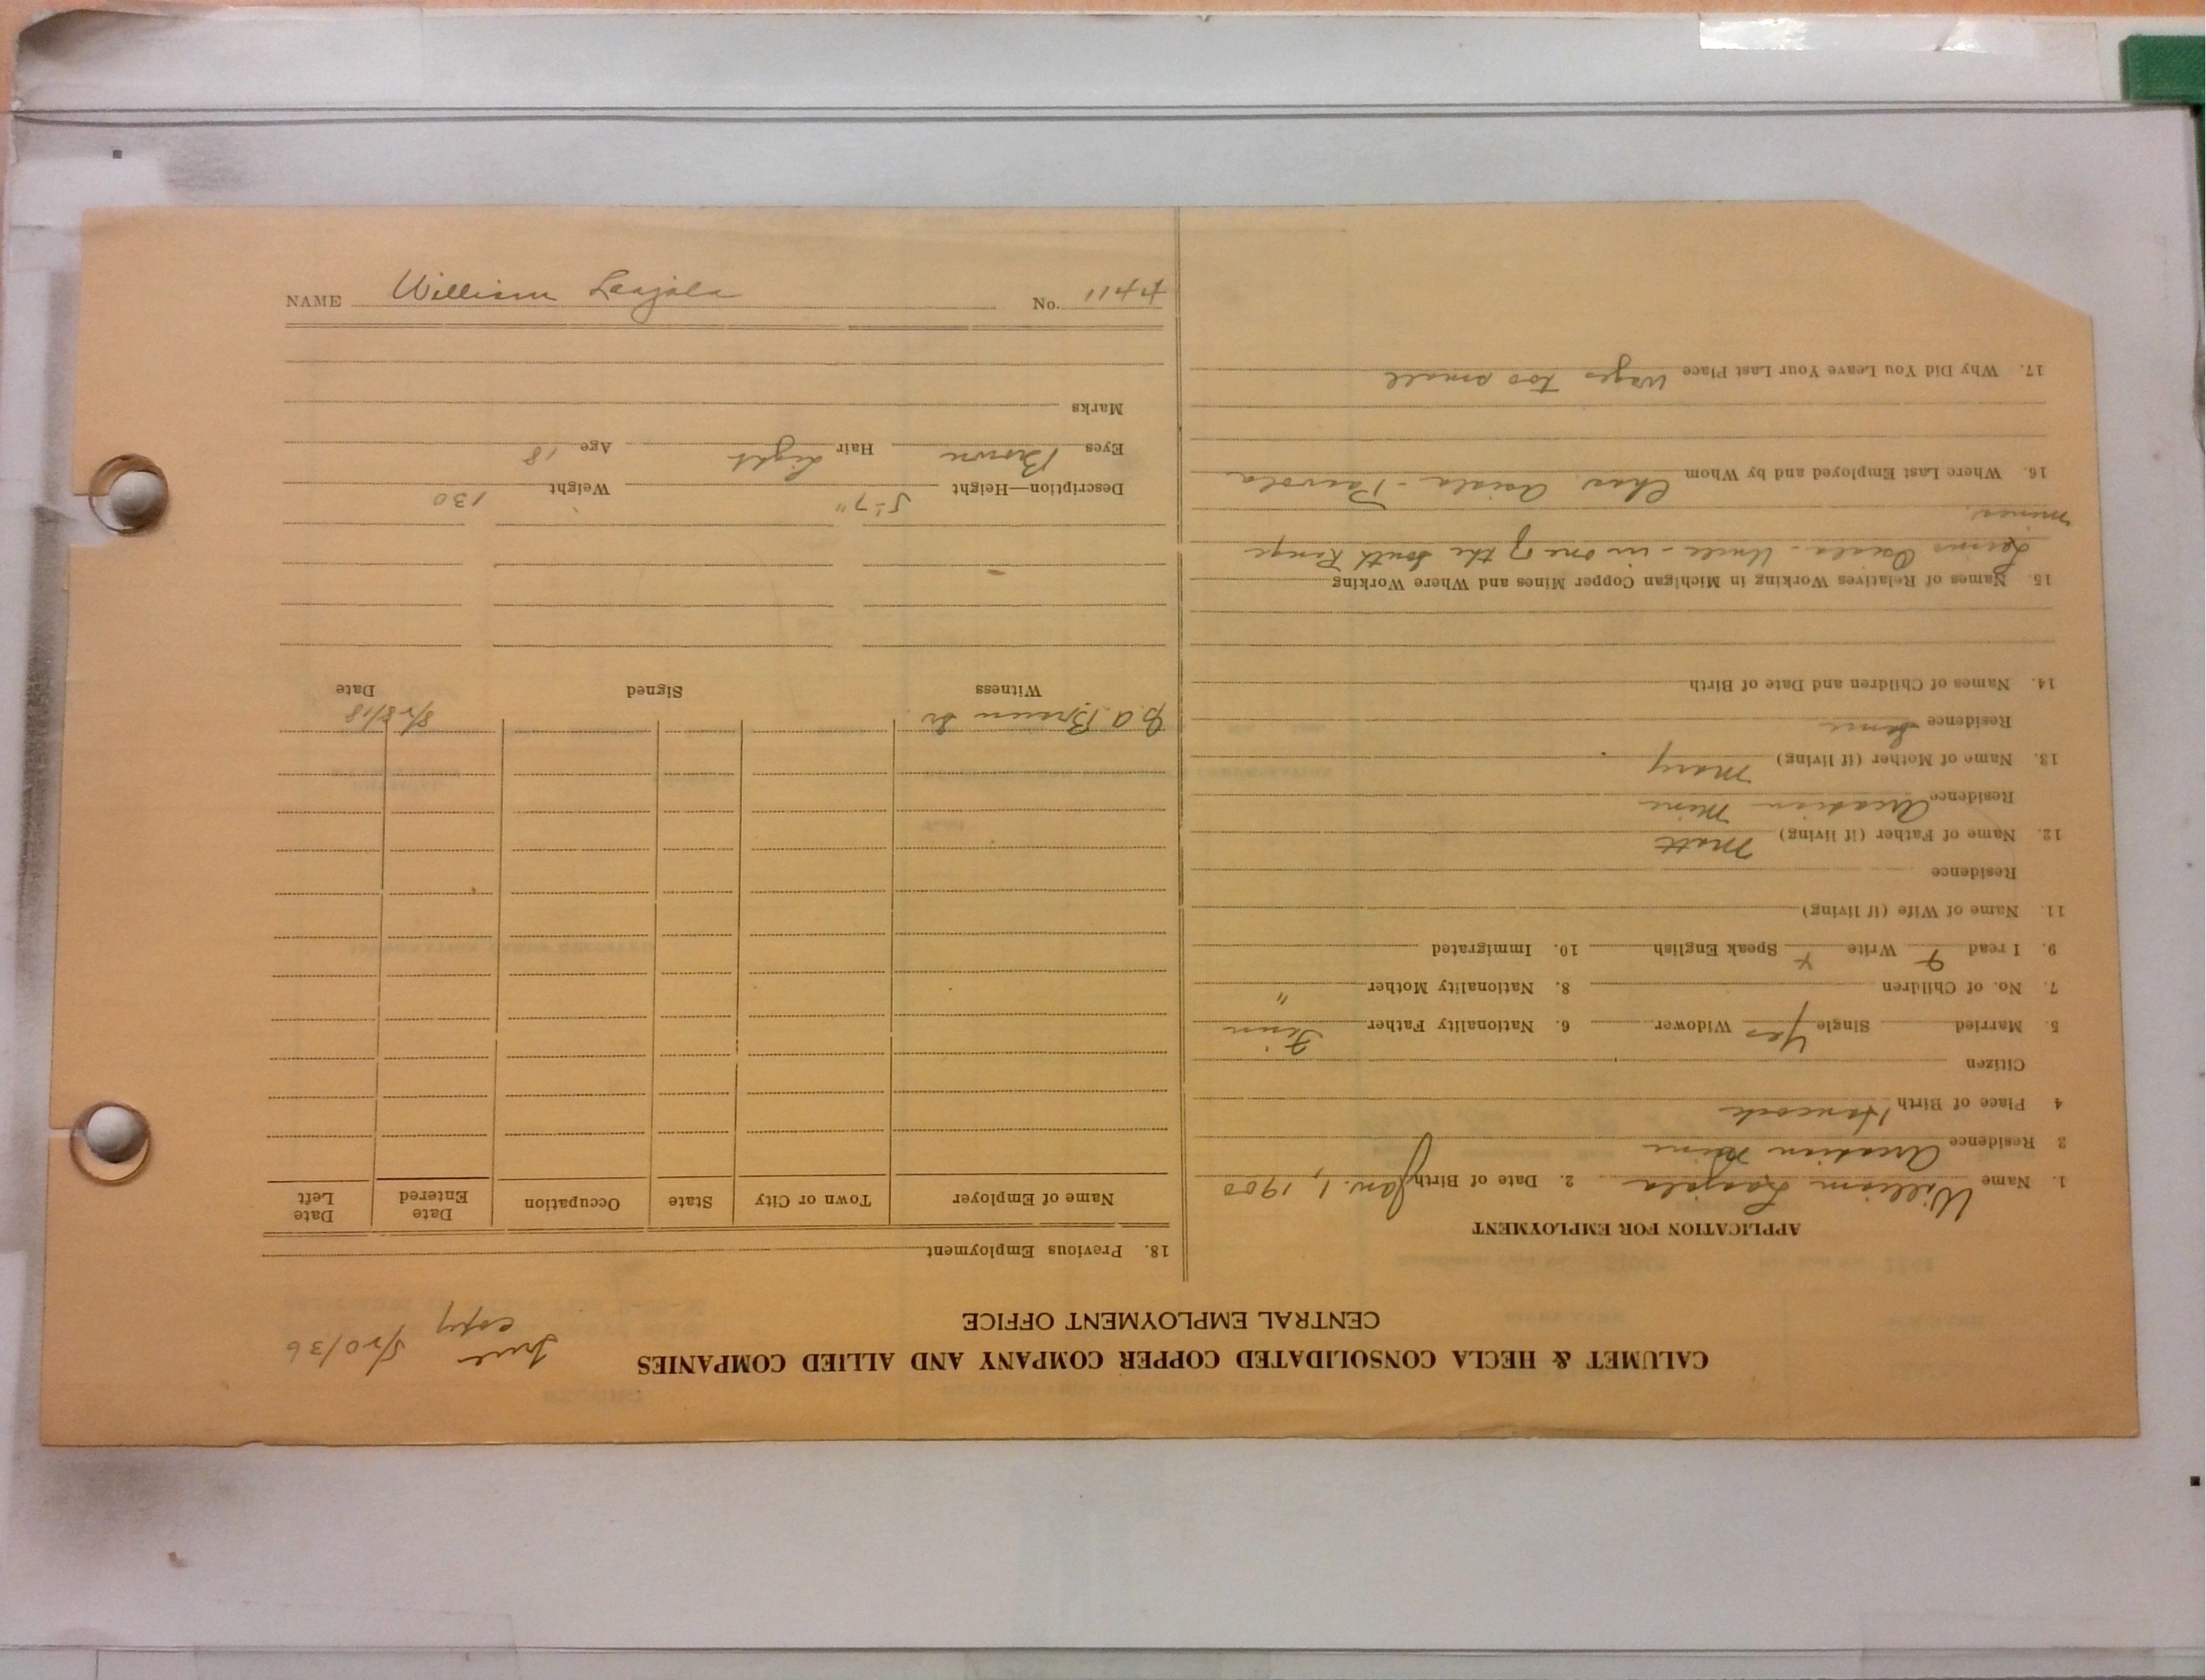 CALUMET & HECLA CONSOLIDATED COPPER COMPANY AND ALLIED COMPANIES
CENTRAL EMPLOYMENT OFFICE
True copy 5/20/36
APPLICATION FOR EMPLOYMENT
1. Name William Laajala 2. Date of Birth Jan. 1, 1900
3 Residence Arcadian Mine
4 Place of Birth Hancock
Citizen
5. Married Single Yes Widower 6. Nationality Father Finn
7. No. of Children 8. Nationality Mother "
9. I read Write Speak English 10. Immigrated
11. Name of Wife (if living)
Residence
12. Name of Father (if living) Matt
Residence Arcadian Mine
13. Name of Mother (if living) Mary
Residence Same
14. Names of Children and Date of Birth
15. Names of Relatives Working in Michigan Copper Mines and Where Working
Asiala - Uncle - in one of the South Range
mines.
16. Where Last Employed and by Whom Chas. Asiala - Paavola
17. Why Did You Leave Your Last Place Wages too small
18. Previous Employment
Name of Employer Town or City State Occupation Date Entered Date Left
8/28/18
Witness Signed Date
Description—Height 5'-7" Weight 130
Eyes Brown Hair Light Age 18
Marks
NAME William Laajala No. 11444